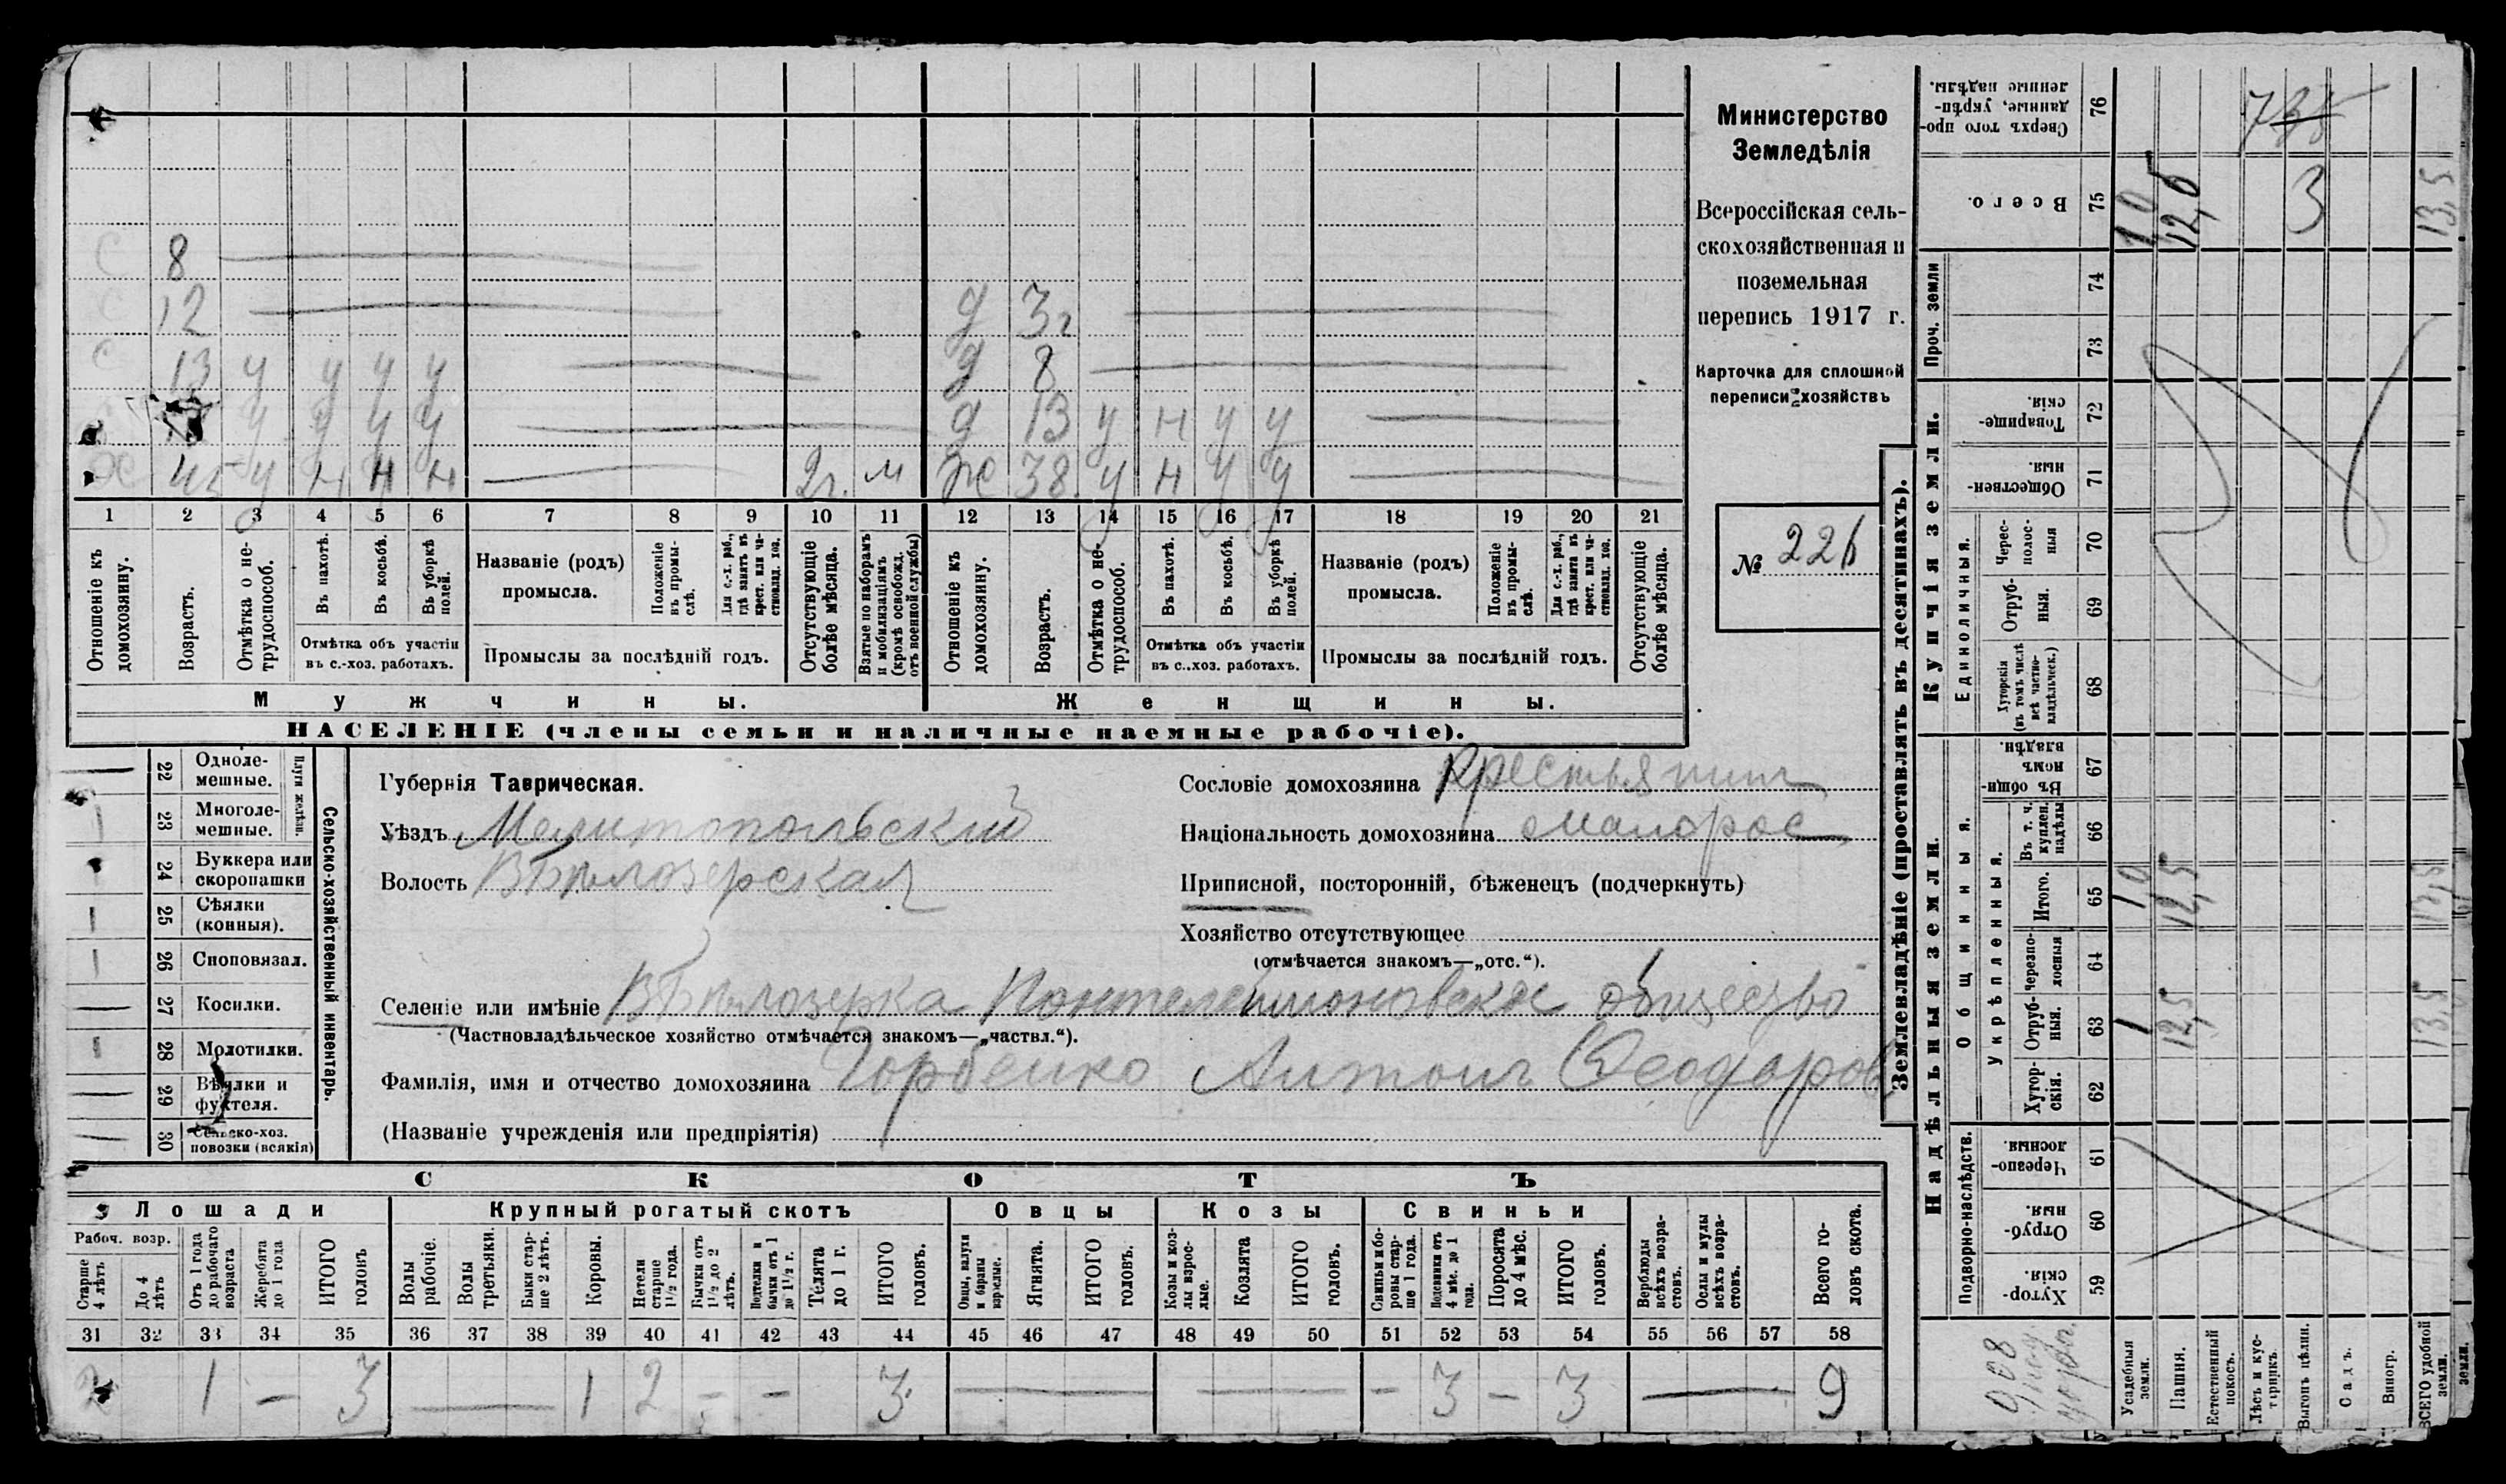 Министерство
Земледѣлія
Всероссійская сель-
скохозяйственная и
поземельная
перепись 1917 г.
Карточка для сплошной
переписи хозяйствъ
№ 226
8
12
д 3г
13 у у у у
д 8
у у у у
д 13 у н у у
у н н н 2г. м
ж 38 у н у у
1 2 3 4 5 6 7 8 9 10 11 12 13 14 15 16 17 18 19 20 21
Отношеніе къ домохозяину.
Возрастъ.
Отмѣтка о не-трудоспособ.
Въ пахотѣ.
Въ косьбѣ.
Въ уборкѣ полей.
Отмѣтка объ участіи
въ с.-хоз. работахъ.
Названіе (родъ)
промысла.
Положеніе въ промы-слѣ.
Для с.-х. раб., гдѣ занятъ въ крест. или ча-стновлад. хоз.
Промыслы за послѣдній годъ.
Отсутствующіе болѣе мѣсяца.
Взятые по наборамъ и мобилизаціямъ (кромѣ освобожд. отъ военной службы)
Отношеніе къ домохозяину.
Возрастъ.
Отмѣтка о не-трудоспособ.
Въ пахотѣ.
Въ косьбѣ.
Въ уборкѣ полей.
Отмѣтка объ участіи
въ с..хоз. работахъ.
Названіе (родъ)
промысла.
Положеніе въ промы-слѣ.
Для с.-х. раб., гдѣ занята въ крест. или ча-стновлад. хоз.
Промыслы за послѣдній годъ.
Отсутствующіе болѣе мѣсяца.
Мужчины.
Женщины.
НАСЕЛЕНІЕ (члены семьи и наличные наемные рабочіе).
Сельско-хозяйственный инвентарь.
Плуги желѣзн.
22 Одноле-мешные.
23 Многоле-мешные.
24 Буккера или скоропашки
25 Сѣялки (конныя).
26 Сноповязал.
27 Косилки.
28 Молотилки.
29 Вѣялки и фухтеля.
30 Сельско-хоз. повозки (всякія)
Губернія Таврическая.
Уѣздъ Мелитопольскій
Волость Бѣлозерская
Сословіе домохозяина крестьянинъ
Національность домохозяина малорос
Приписной, посторонній, бѣженецъ (подчеркнуть)
Хозяйство отсутствующее
(отмѣчается знакомъ—„отс.“).
Селеніе или имѣніе Бѣлозерка Понтелеймоновское общество
(Частновладѣльческое хозяйство отмѣчается знакомъ—„частвл.“).
Фамилія, имя и отчество домохозяина Горбенко Антонъ Феодоров
(Названіе учрежденія или предпріятія)
СКОТЪ
Лошади
Крупный рогатый скотъ
Овцы
Козы
Свиньи
Рабоч. возр.
Старше 4 лѣтъ
До 4 лѣтъ
Отъ 1 года до рабочаго возраста
Жеребята до 1 года
ИТОГО головъ
Волы рабочіе.
Волы третьяки.
Быки стар-ше 2 лѣтъ.
Коровы.
Нетели старше 1½ года.
Бычки отъ 1½ до 2 лѣтъ.
Подтелки и бычки от 1 до 1½ г.
Телята до 1 г.
ИТОГО головъ.
Овцы, валухи и бараны взрослые.
Ягнята.
ИТОГО головъ.
Козы и коз-лы взрос-лые.
Козлята
ИТОГО головъ.
Свиньи и бо-ровы стар-ше 1 года.
Подсвинки отъ 4 мѣс. до 1 года.
Поросята до 4 мѣс.
ИТОГО головъ.
Верблюды всѣхъ возра-стовъ.
Ослы и мулы всѣхъ возра-стовъ.
Всего го-ловъ скота.
31 32 33 34 35 36 37 38 39 40 41 42 43 44 45 46 47 48 49 50 51 52 53 54 55 56 57 58
2 1 — 3 — 1 2 — — 3 — — — 3 — 3 — 9
Землевладѣніе (проставлять въ десятинахъ).
Надѣльныя земли.
Купчія земли.
Проч. земли
Подворно-наслѣдств.
Общинныя.
Укрѣпленныя.
Единоличныя.
59 Хутор-скія.
60 Отруб-ныя.
61 Черезпо-лосныя
62 Хутор-скія.
63 Отруб-ныя.
64 Черезпо-лосныя
65 Итого.
66 Въ т. ч. куплен. надѣлы
67 Въ общи-номъ владѣн.
68 Хуторскія (въ томъ числѣ всѣ частно-владѣльческ.)
69 Отруб-ныя.
70 Черес-полос-ныя
71 Обществен-ныя.
72 Товарище-скія.
73
74
75 Всего.
76 Сверхъ того про-данные, укрѣп-ленные надѣлы.
Усадебныя земли.
Пашня.
Естественный покосъ.
Лѣсъ и кус-тарникъ.
Выгонъ цѣлин.
Садъ.
Виногр.
ВСЕГО удобной земли.
1 12,5 13,5
1,0 12,5 13,5
1,0 12,5 3 13,5
908